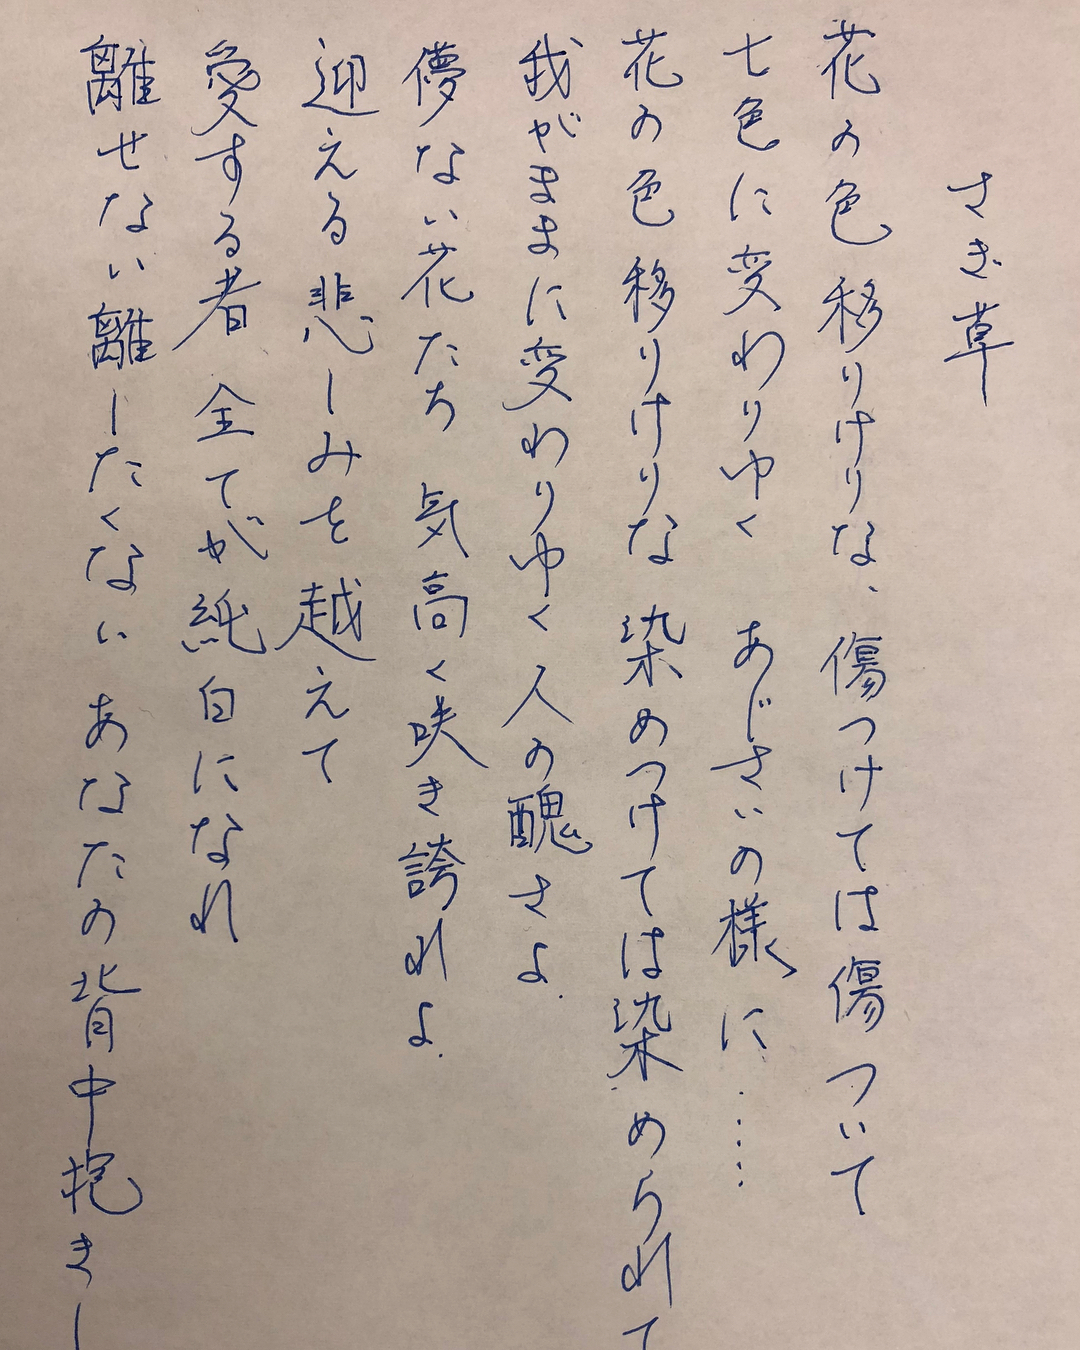 さぎ草
花の色移りけりな、傷つけては傷ついて
七色に変わりゆく あじさいの様に……
花の色移りけりな 染めつけては染められて
我がままに変わりゆく人の醜さよ.
儚ない花たち 気高く咲き誇れよ.
迎える悲しみを越えて
愛する者 全てが純白になれ
離せない離したくない あなたの背中抱きし